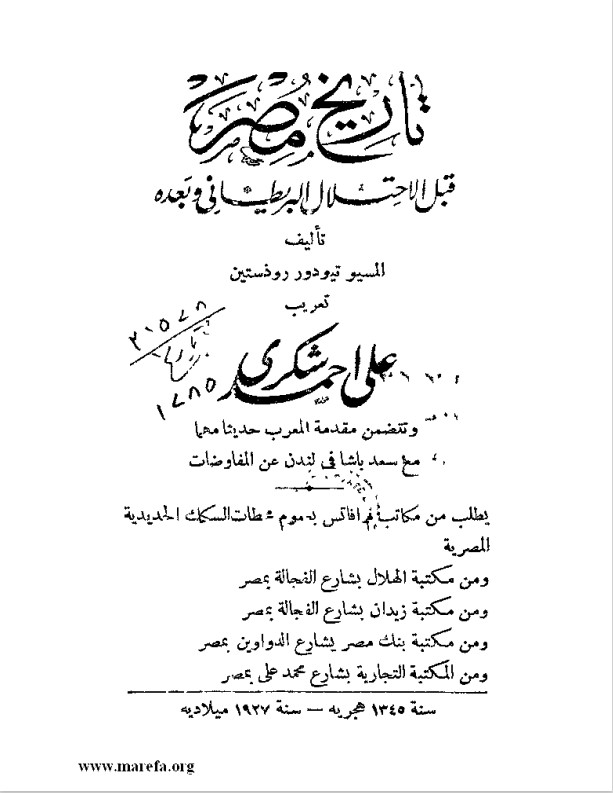 تاريخ مصر
قبل الاحتلال البريطاني وبعده
تأليف
المسيو تيودور روذستين
تعريب
على احمد شكرى
٢١٥٧٨
١٧٨٥
وتتضمن مقدمة المعرب حديثا مهما
مع سعد باشا فى لندن عن المفاوضات
يطلب من مكاتب فرافاتس بعموم محطات السكك الحديدية
المصرية
ومن مكتبة الهلال بشارع الفجالة بمصر
ومن مكتبة زيدان بشارع الفجالة بمصر
ومن مكتبة بنك مصر بشارع الدواوين بمصر
ومن المكتبة التجارية بشارع محمد على بمصر
سنة ١٣٤٥ هجريه — سنة ١٩٢٧ ميلاديه
www.marefa.org